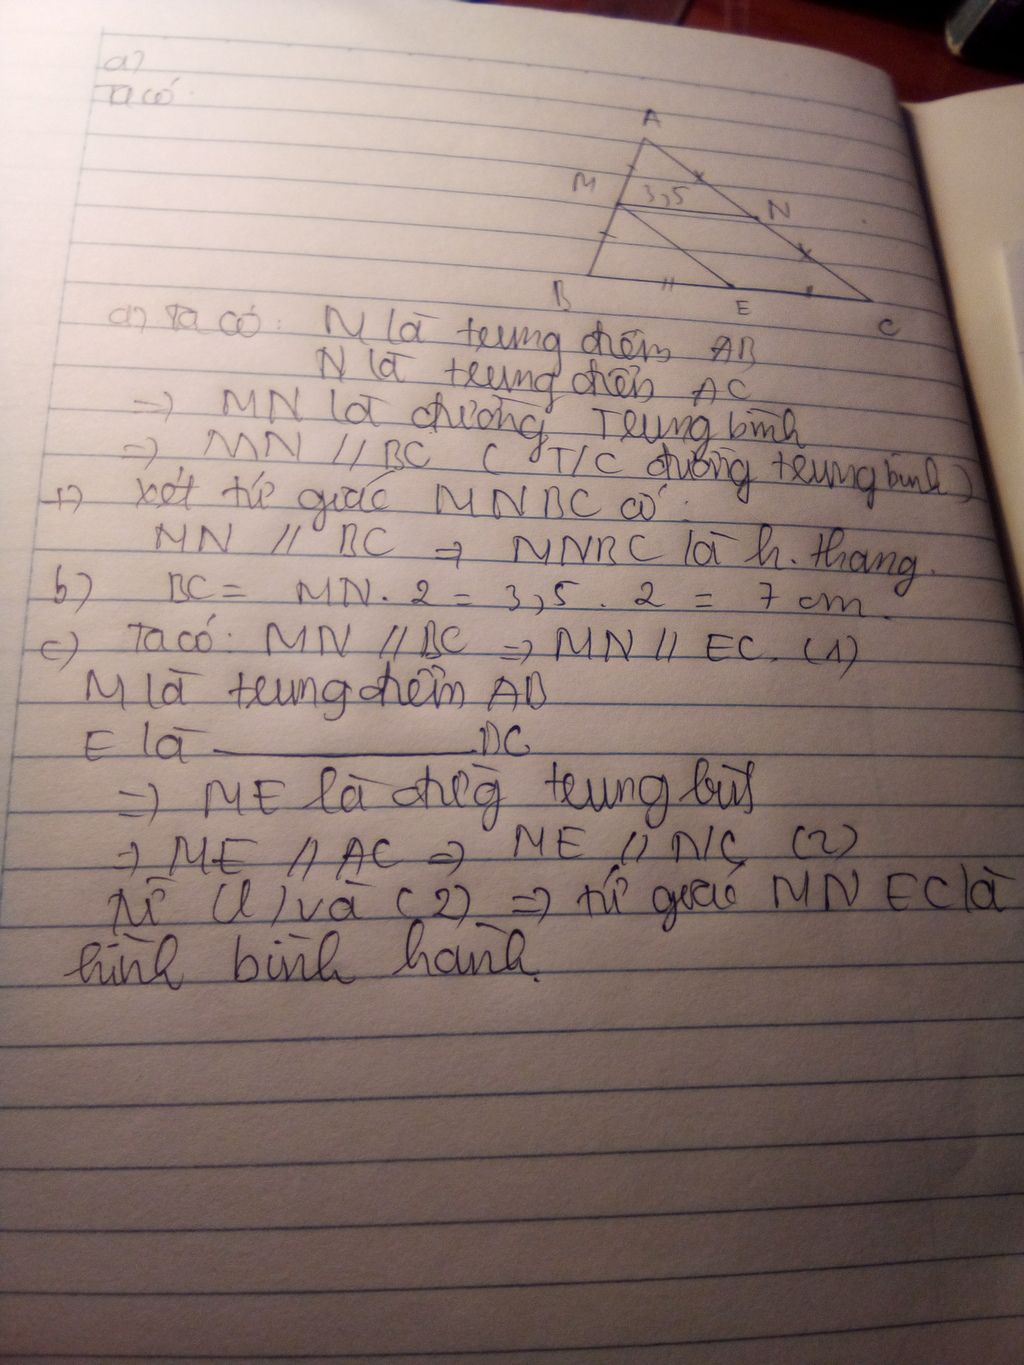 a)
Ta có
A
M
3,5
N
B
E
C
a) Ta có: M là trung điểm AB
N là trung điểm AC
=> MN là đường Trung bình
=> MN // BC ( T/C đường trung bình )
+) xét tứ giác MNBC có:
MN // BC => MNBC là h.thang.
b) BC = MN. 2 = 3,5 . 2 = 7 cm.
c) Ta có: MN // BC => MN // EC. (1)
M là trung điểm AB
E là ———— BC
=> ME là đường trung bình
=> ME // AC => ME // NC (2)
từ (1) và (2) => tứ giác MNEC là
hình bình hành.